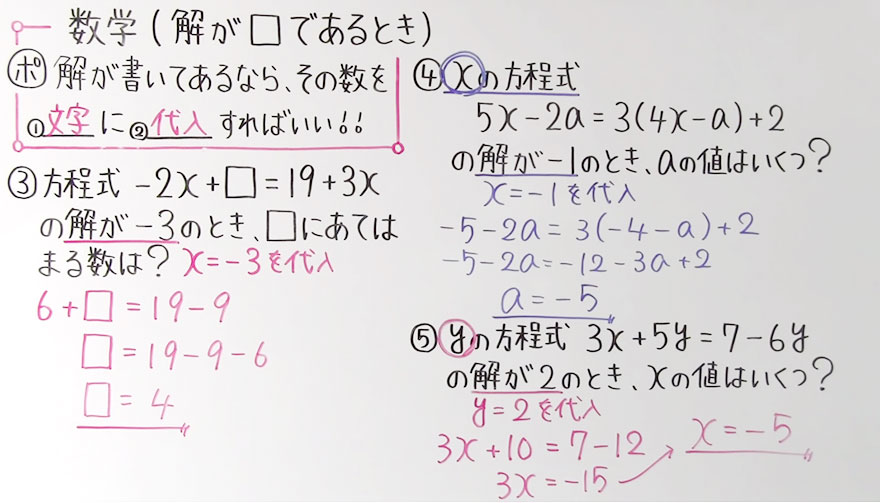 数学(解が□であるとき)
ポ 解が書いてあるなら、その数を
①文字に②代入すればいい!!
③方程式 -2x+□=19+3x
の解が-3のとき、□にあては
まる数は? x=-3を代入
6+□=19-9
□=19-9-6
□=4
④xの方程式
5x-2a=3(4x-a)+2
の解が-1のとき、aの値はいくつ?
x=-1を代入
-5-2a=3(-4-a)+2
-5-2a=-12-3a+2
a=-5
⑤yの方程式 3x+5y=7-6y
の解が2のとき、xの値はいくつ?
y=2を代入
3x+10=7-12
3x=-15
x=-5